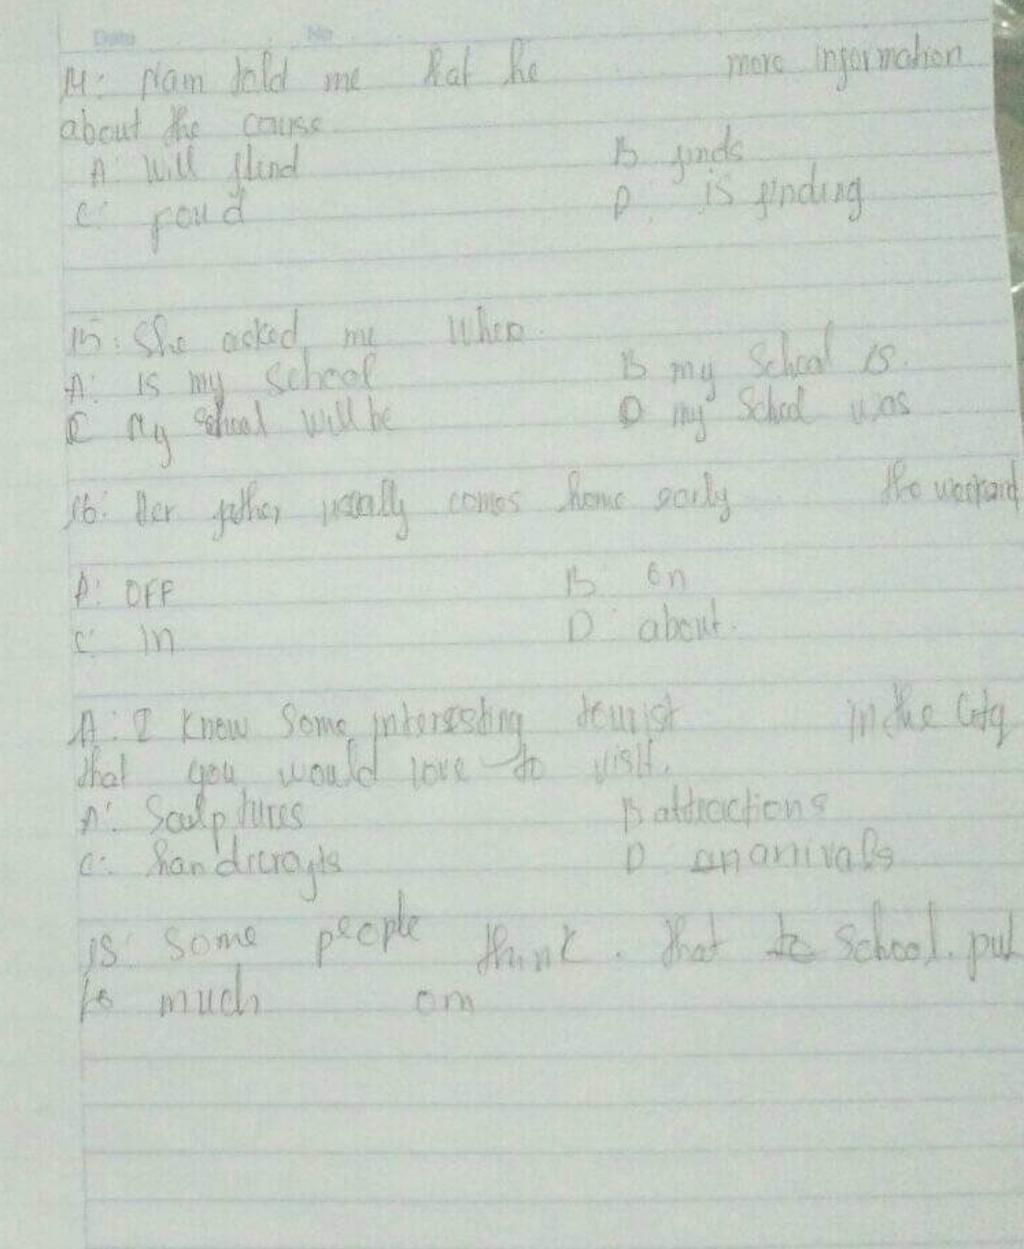 Date No
14: Nam told me that he more information
about the course
A: Will find B finds
C: foud D. is finding
15: She asked me when
A: is my school B my School is.
C My school will be D my School was
16: Her father usually comes home early the weekend
A: OFF B: on
C: in D: about.
A: I know some interesting tourist in the City
that you would love to visit.
A: Sculptures B attractions
C: handicrafts D
18: Some people think. that to school. put
to much on